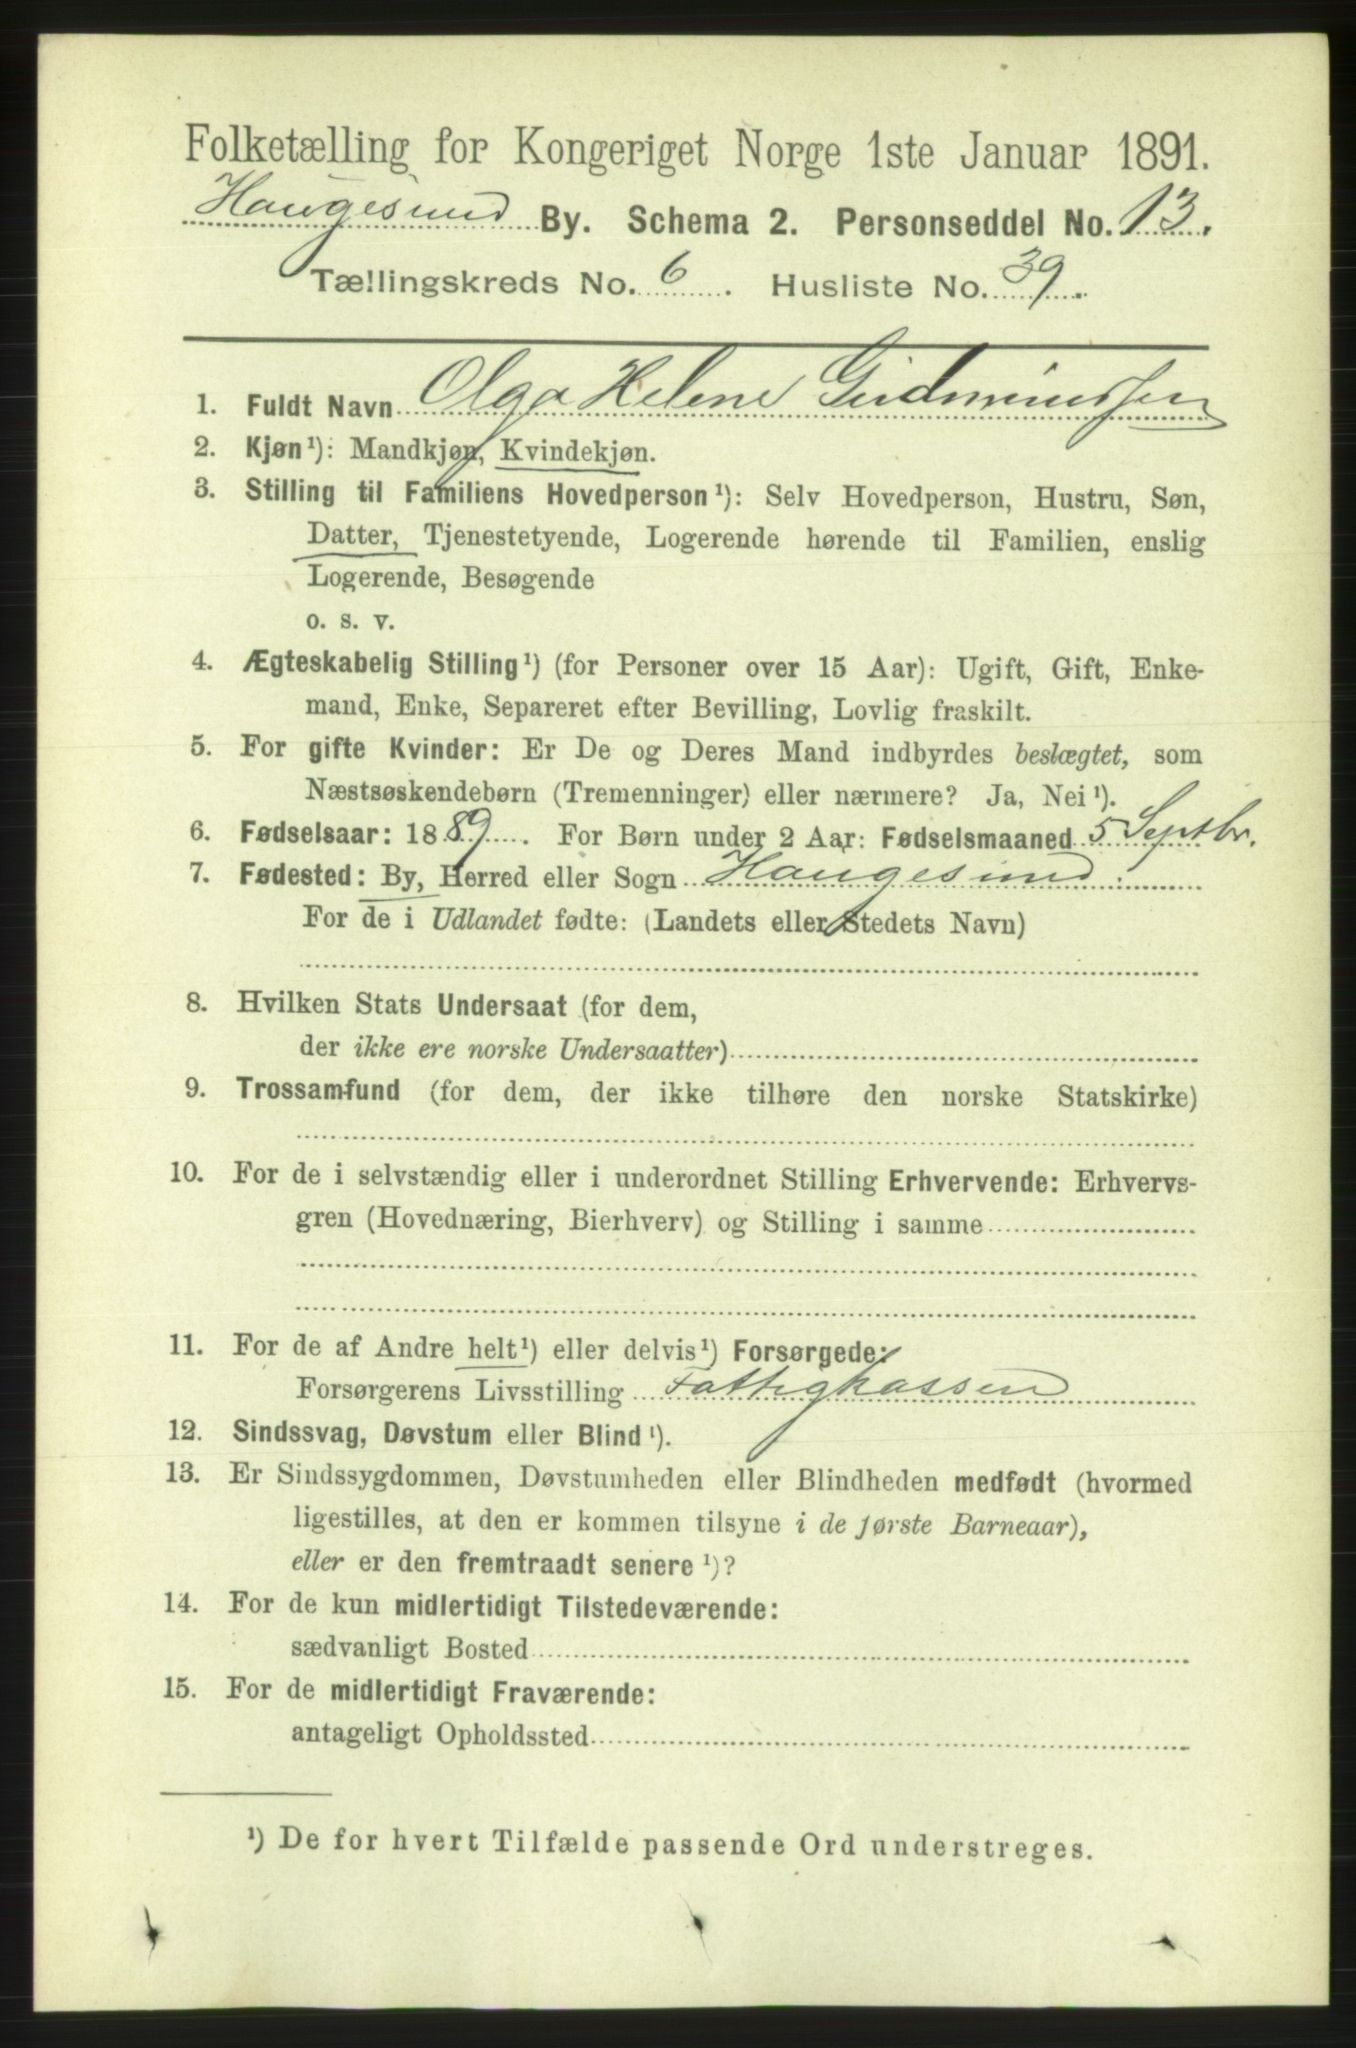 Folketælling for Kongeriget Norge 1ste Januar 1891.
Haugesund By. Schema 2. Personseddel No. 13.
Tællingskreds No. 6. Husliste No. 39.
1. Fuldt Navn Olga Helene
2. Kjøn¹): Mandkjøn, Kvindekjøn.
3. Stilling til Familiens Hovedperson¹): Selv Hovedperson, Hustru, Søn,
Datter, Tjenestetyende, Logerende hørende til Familien, enslig
Logerende, Besøgende
o. s. v.
4. Ægteskabelig Stilling¹) (for Personer over 15 Aar): Ugift, Gift, Enke-
mand, Enke, Separeret efter Bevilling, Lovlig fraskilt.
5. For gifte Kvinder: Er De og Deres Mand indbyrdes beslægtet, som
Næstsøskendebørn (Tremenninger) eller nærmere? Ja, Nei¹).
6. Fødselsaar: 1889. For Børn under 2 Aar: Fødselsmaaned 5 Septbr.
7. Fødested: By, Herred eller Sogn Haugesund
For de i Udlandet fødte: (Landets eller Stedets Navn)
8. Hvilken Stats Undersaat (for dem,
der ikke ere norske Undersaatter)
9. Trossamfund (for dem, der ikke tilhøre den norske Statskirke)
10. For de i selvstændig eller i underordnet Stilling Erhvervende: Erhvervs-
gren (Hovednæring, Bierhverv) og Stilling i samme
11. For de af Andre helt¹) eller delvis¹) Forsørgede:
Forsørgerens Livsstilling Fattigkassen
12. Sindssvag, Døvstum eller Blind¹).
13. Er Sindssygdommen, Døvstumheden eller Blindheden medfødt (hvormed
ligestilles, at den er kommen tilsyne i de første Barneaar),
eller er den fremtraadt senere¹)?
14. For de kun midlertidigt Tilstedeværende:
sædvanligt Bosted
15. For de midlertidigt Fraværende:
antageligt Opholdssted
¹) De for hvert Tilfælde passende Ord understreges.